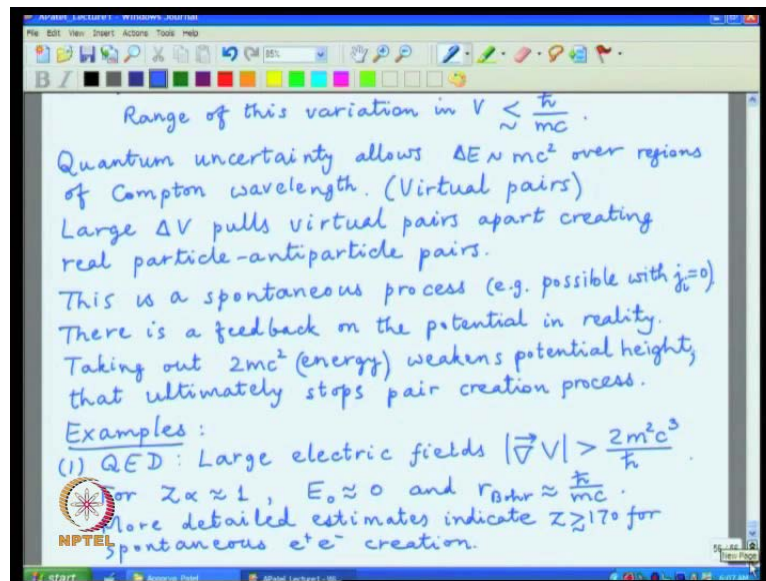 APatel_Lecture1 - Windows Journal
File Edit View Insert Actions Tools Help
85%
B I
Range of this variation in V ≲ ħ/mc .
Quantum uncertainty allows ΔE ~ mc² over regions
of Compton wavelength. (Virtual pairs)
Large ΔV pulls virtual pairs apart creating
real particle-antiparticle pairs.
This is a spontaneous process (e.g. possible with jᵢ=0)
There is a feedback on the potential in reality.
Taking out 2mc² (energy) weakens potential height,
that ultimately stops pair creation process.
Examples :
(1) QED : Large electric fields |∇⃗V| > 2m²c³/ħ
For Zα ≈ 1 , E₀ ≈ 0 and r_Bohr ≈ ħ/mc .
More detailed estimates indicate Z ≳ 170 for
spontaneous e⁺e⁻ creation.
NPTEL
New Page
start Apoorva Patel APatel_Lecture1 - Wi...